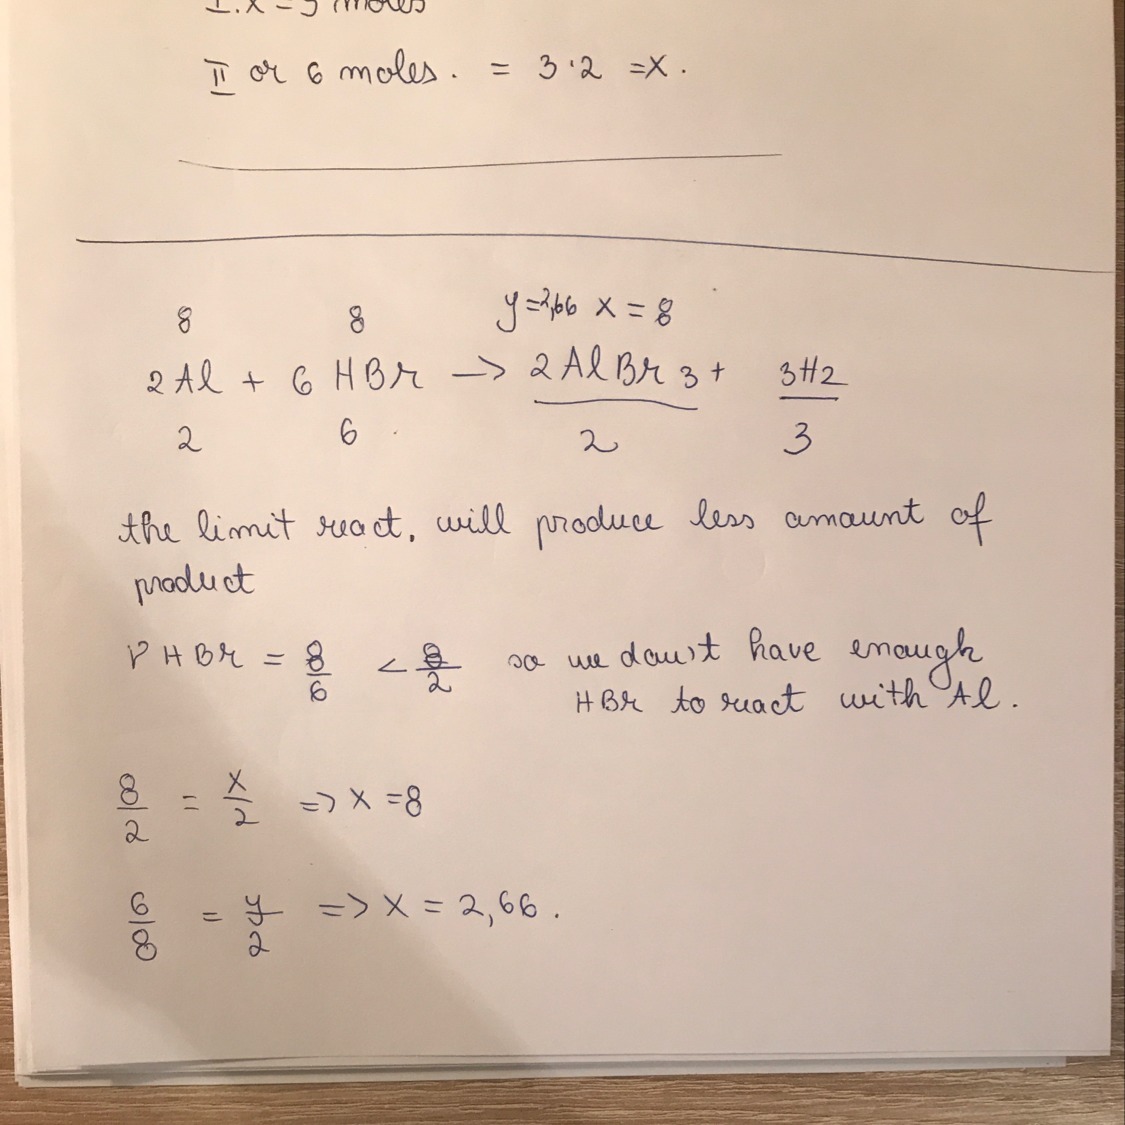 I. x = 3 moles
II or 6 moles. = 3·2 = x.
8 8 y=2,66 x = 8
2 Al + 6 HBr → 2 AlBr3 + 3H2
2 6 2 3
the limit react. will produce less amount of
product
ν HBr = 8/6 < 8/2 so we don't have enough
HBr to react with Al.
8/2 = x/2 => x = 8
6/8 = y/2 => x = 2,66.